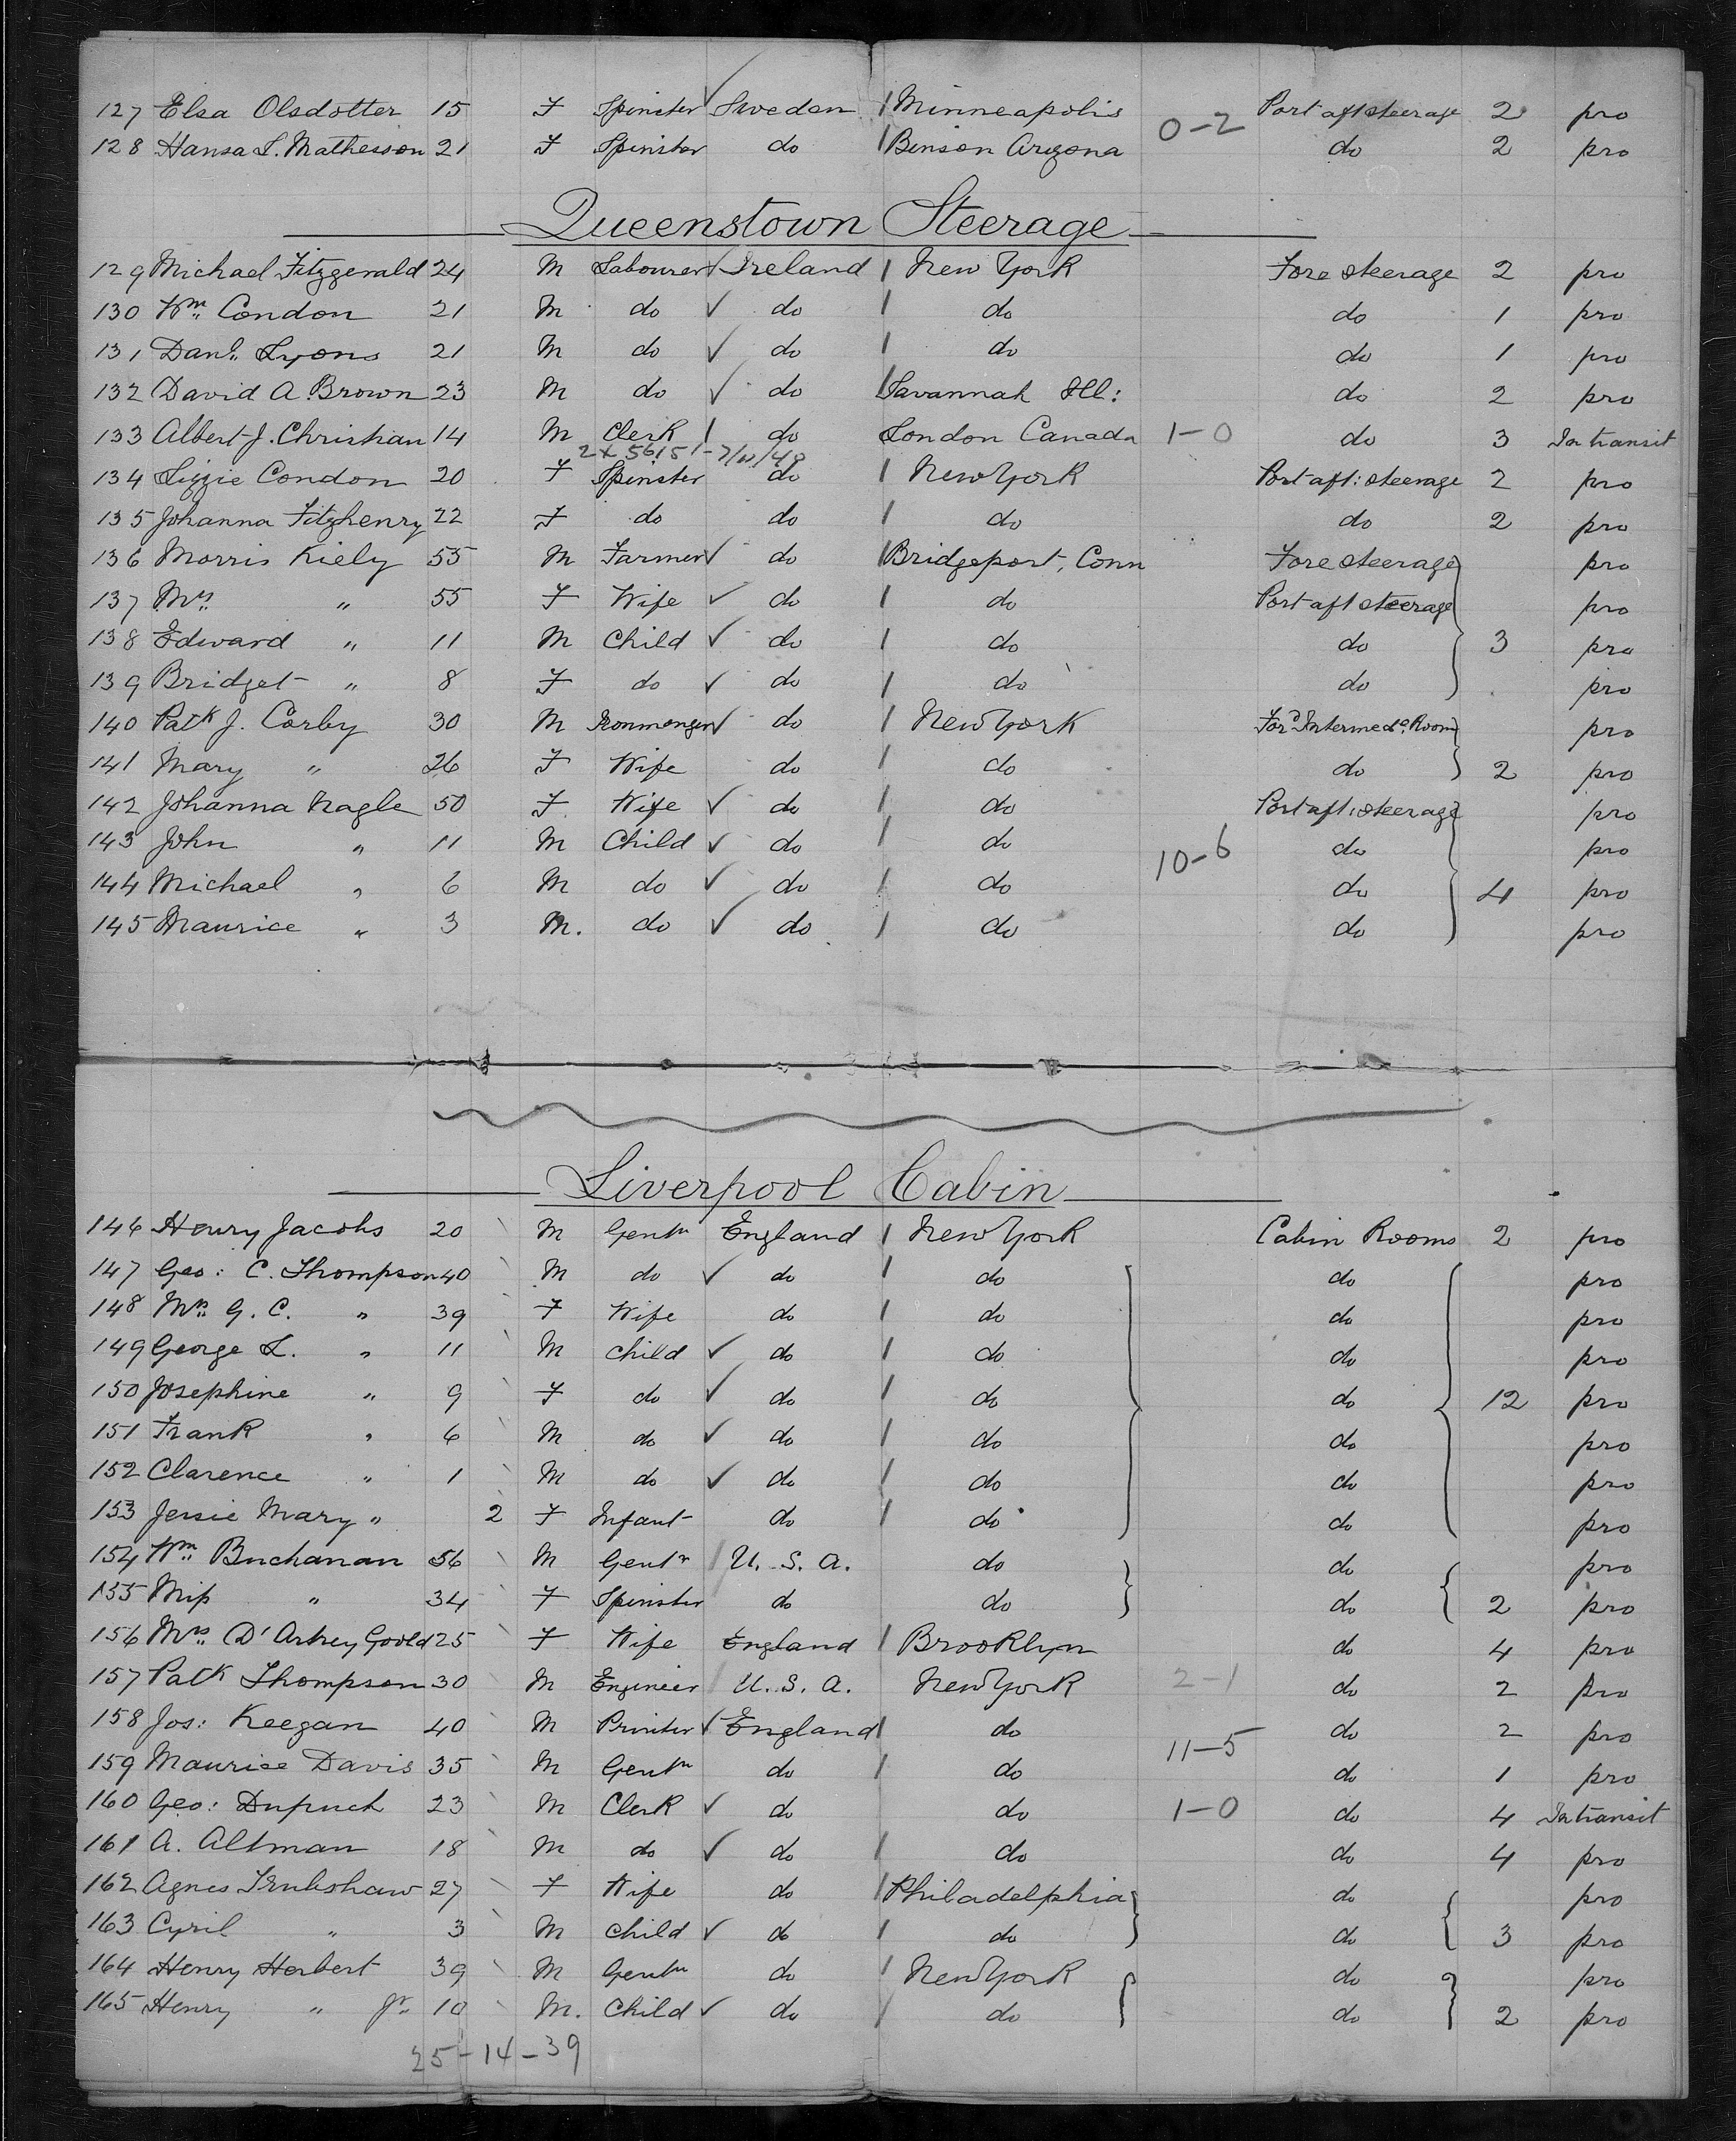 127 Elsa Olsdotter 15 F Spinster Sweden Minneapolis Port aft steerage 2 pro
0-2
128 Hansa S. Mathesson 21 F Spinster do Benson Arizona do 2 pro
Queenstown Steerage
129 Michael Fitzgerald 24 M Labourer Ireland New York Fore steerage 2 pro
130 Wm. Condon 21 M do do do do 1 pro
131 Danl. Lyons 21 M do do do do 1 pro
132 David A. Brown 23 M do do Savannah Ill: do 2 pro
133 Albert J. Christian 14 M Clerk do London Canada 1-0 do 3 In transit
134 Lizzie Condon 20 F Spinster do New York Port aft: steerage 2 pro
135 Johanna Fitzhenry 22 F do do do do 2 pro
136 Morris Kiely 55 M Farmer do Bridgeport, Conn Fore steerage pro
137 Mrs. " 55 F Wife do do Port aft steerage pro
138 Edward " 11 M Child do do do 3 pro
139 Bridget " 8 F do do do do pro
140 Patk J. Corby 30 M Ironmonger do New York Ford Intermede. Room pro
141 Mary " 26 F Wife do do do 2 pro
142 Johanna Nagle 50 F Wife do do Port aft: steerage pro
143 John " 11 M Child do do 10-6 do pro
144 Michael " 6 M do do do do 4 pro
145 Maurice " 3 M. do do do do pro
Liverpool Cabin
146 Henry Jacobs 20 M Gentn England New York Cabin Rooms 2 pro
147 Geo: C. Thompson 40 M do do do do pro
148 Mrs. G. C. " 39 F Wife do do do pro
149 George L. " 11 M Child do do do pro
150 Josephine " 9 F do do do do 12 pro
151 Frank " 6 M do do do do pro
152 Clarence " 1 M do do do do pro
153 Jessie Mary " 2 F Infant do do do pro
154 Wm. Buchanan 56 M Gentn U. S. A. do do pro
155 Miss " 34 F Spinster do do do 2 pro
156 Mrs. D'Arbey Goold 25 F Wife England Brooklyn do 4 pro
157 Patk Thompson 30 M Engineer U. S. A. New York 2-1 do 2 pro
158 Jos: Keegan 40 M Printer England do do 2 pro
159 Maurice Davis 35 M Gentn do do 11-5 do 1 pro
160 Geo: Dupuch 23 M Clerk do do 1-0 do 4 In transit
161 A. Altman 18 M do do do do 4 pro
162 Agnes Trubshaw 27 F Wife do Philadelphia do pro
163 Cyril " 3 M Child do do do 3 pro
164 Henry Herbert 39 M Gentn do New York do pro
165 Henry " Jr. 10 M. Child do do do 2 pro
25-14-39